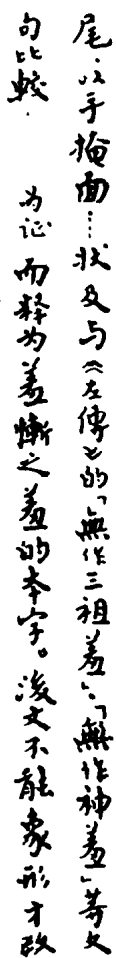 尾·以手掩面…状及与《左傳》的「無作三祖羞」、「無作神羞」等文
句比較. 为证而释为羞慚之羞的本字。後文不能象形才改